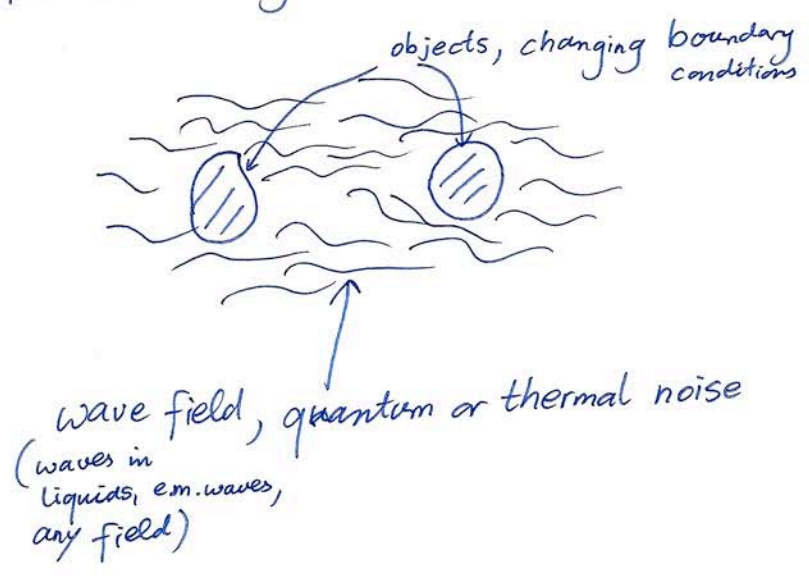 objects, changing boundary
conditions
wave field, quantum or thermal noise
(waves in
liquids, e.m. waves,
any field)